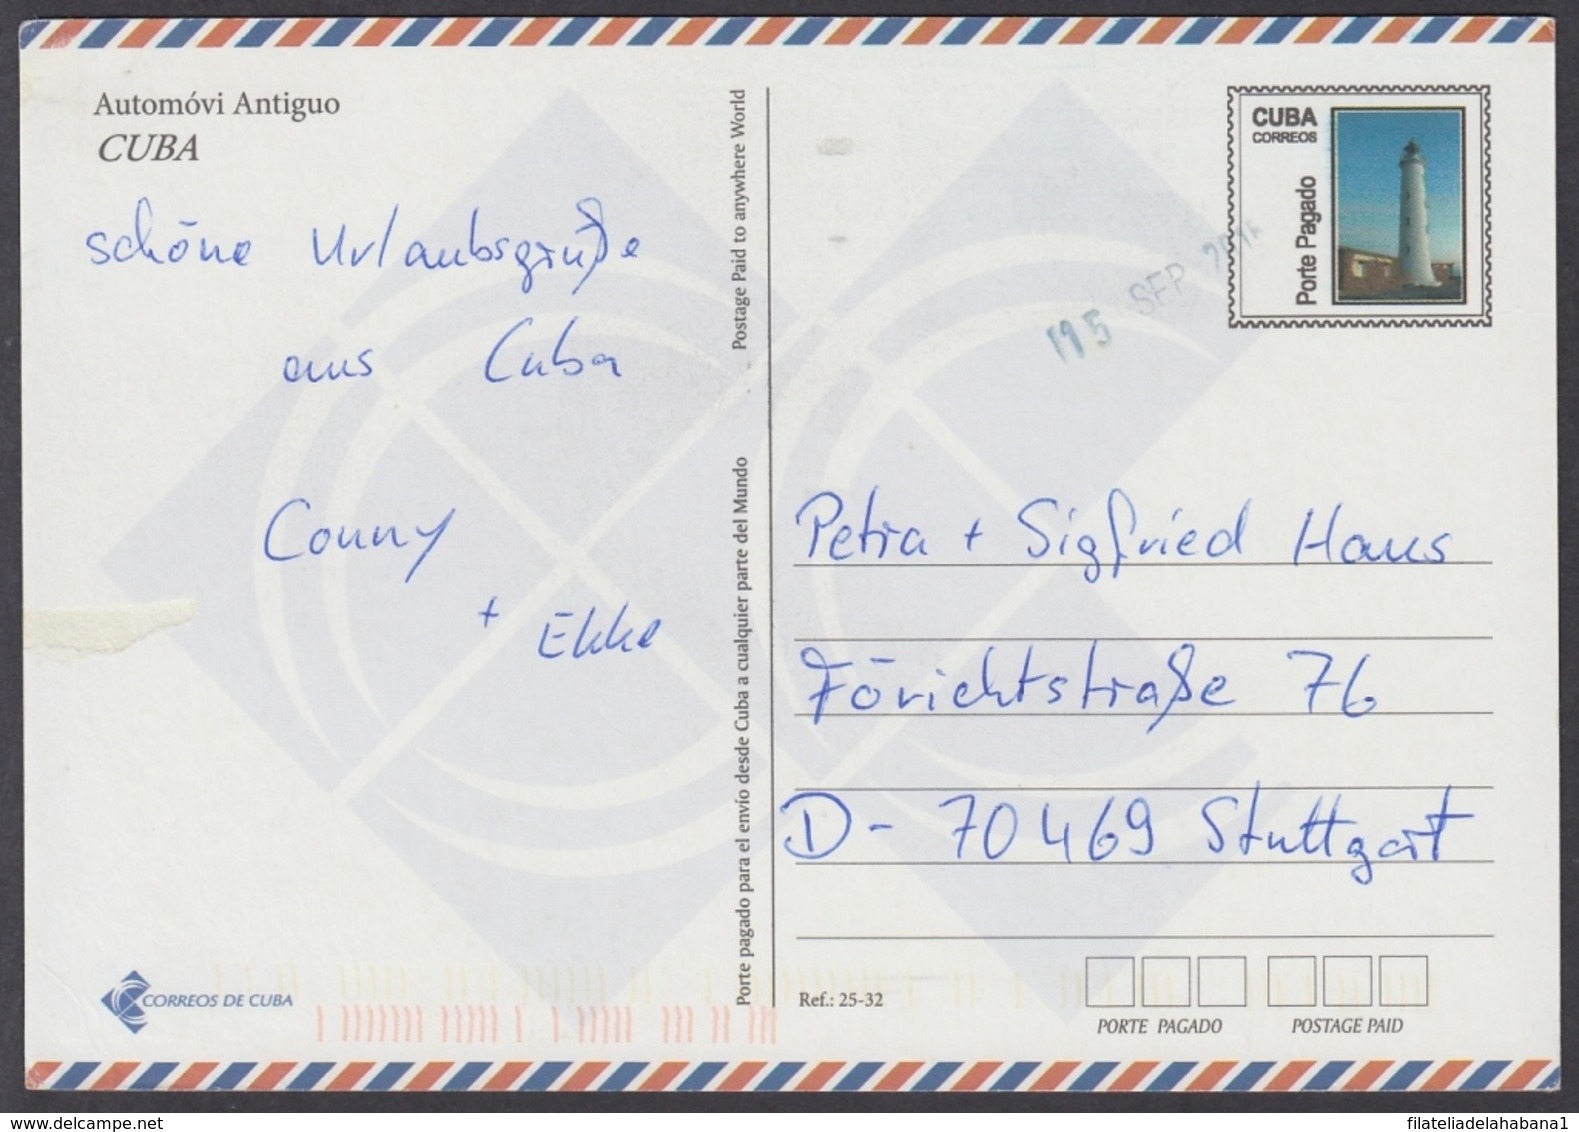 Automóvi Antiguo
CUBA
schöne Urlaubsgrüße
aus Cuba
Conny
+ Ekke
Postage Paid to anywhere World
Porte pagado para el envío desde Cuba a cualquier parte del Mundo
CUBA
CORREOS
Porte Pagado
15 SEP
Petra + Sigfried Haus
Förichtstraße 76
D-70469 Stuttgart
CORREOS DE CUBA
Ref.: 25-32
PORTE PAGADO
POSTAGE PAID
filateliadelahabana1